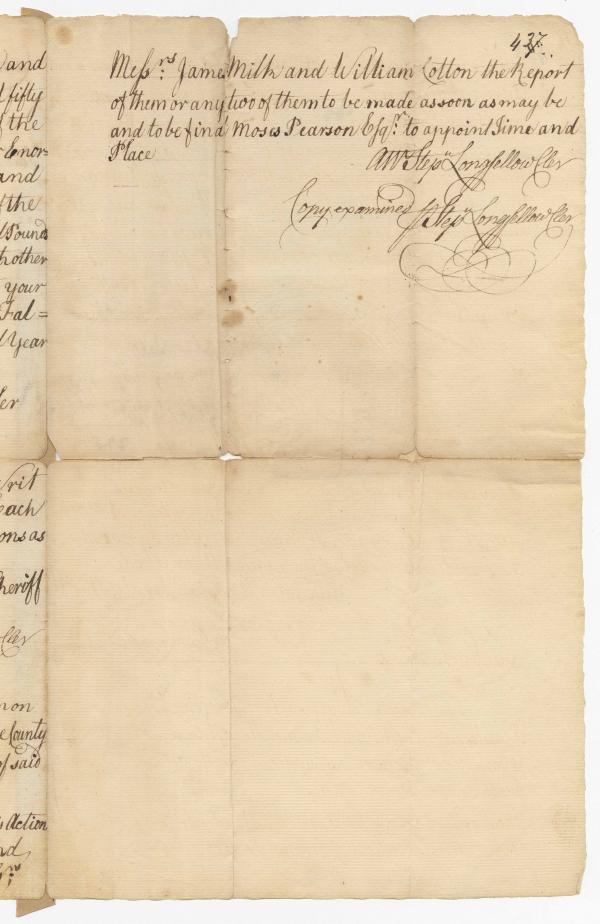 and
fifty
the
Enor=
and
the
Pound
other
your
Fal=
Year
er
rit
Each
ons as
heriff
Cler
non
e County
of said
Action
nd,
437.
Mess:rs James Milk and William Cotton the Report
of them or any two of them to be made as soon as may be
and to be find Moses Pearson Esqr: to appoint Time and
Place
Attr Stepn Longfellow Cler
Copy examined Stepn Longfellow Cler